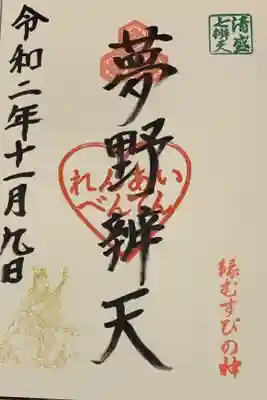 清盛
七辨天
夢野辨天
れんあい
べんてん
縁むすびの神
令和二年十一月九日